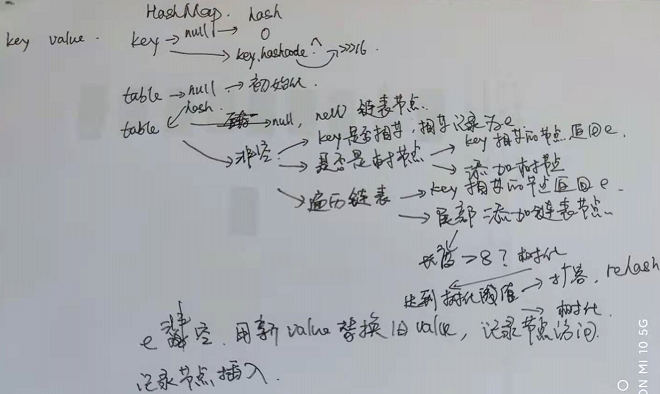 HashMap. hash
key value. key → null → 0
→ key.hashcode ^ >>>16
table → null → 初始化.
hash
table → null, new 链表节点.
→ 非空 → key是否相等, 相等记录为e
→ 是否是树节点 → key相等的节点返回e.
→ 添加树节点
→ 遍历链表 → key相等的节点返回e.
→ 尾部添加链表节点.
长度 >8? 树化
达到树化阈值 → 扩容, rehash
→ 树化.
e 非空. 用新value替换旧value, 记录节点访问.
记录节点插入.
ON MI 10 5G